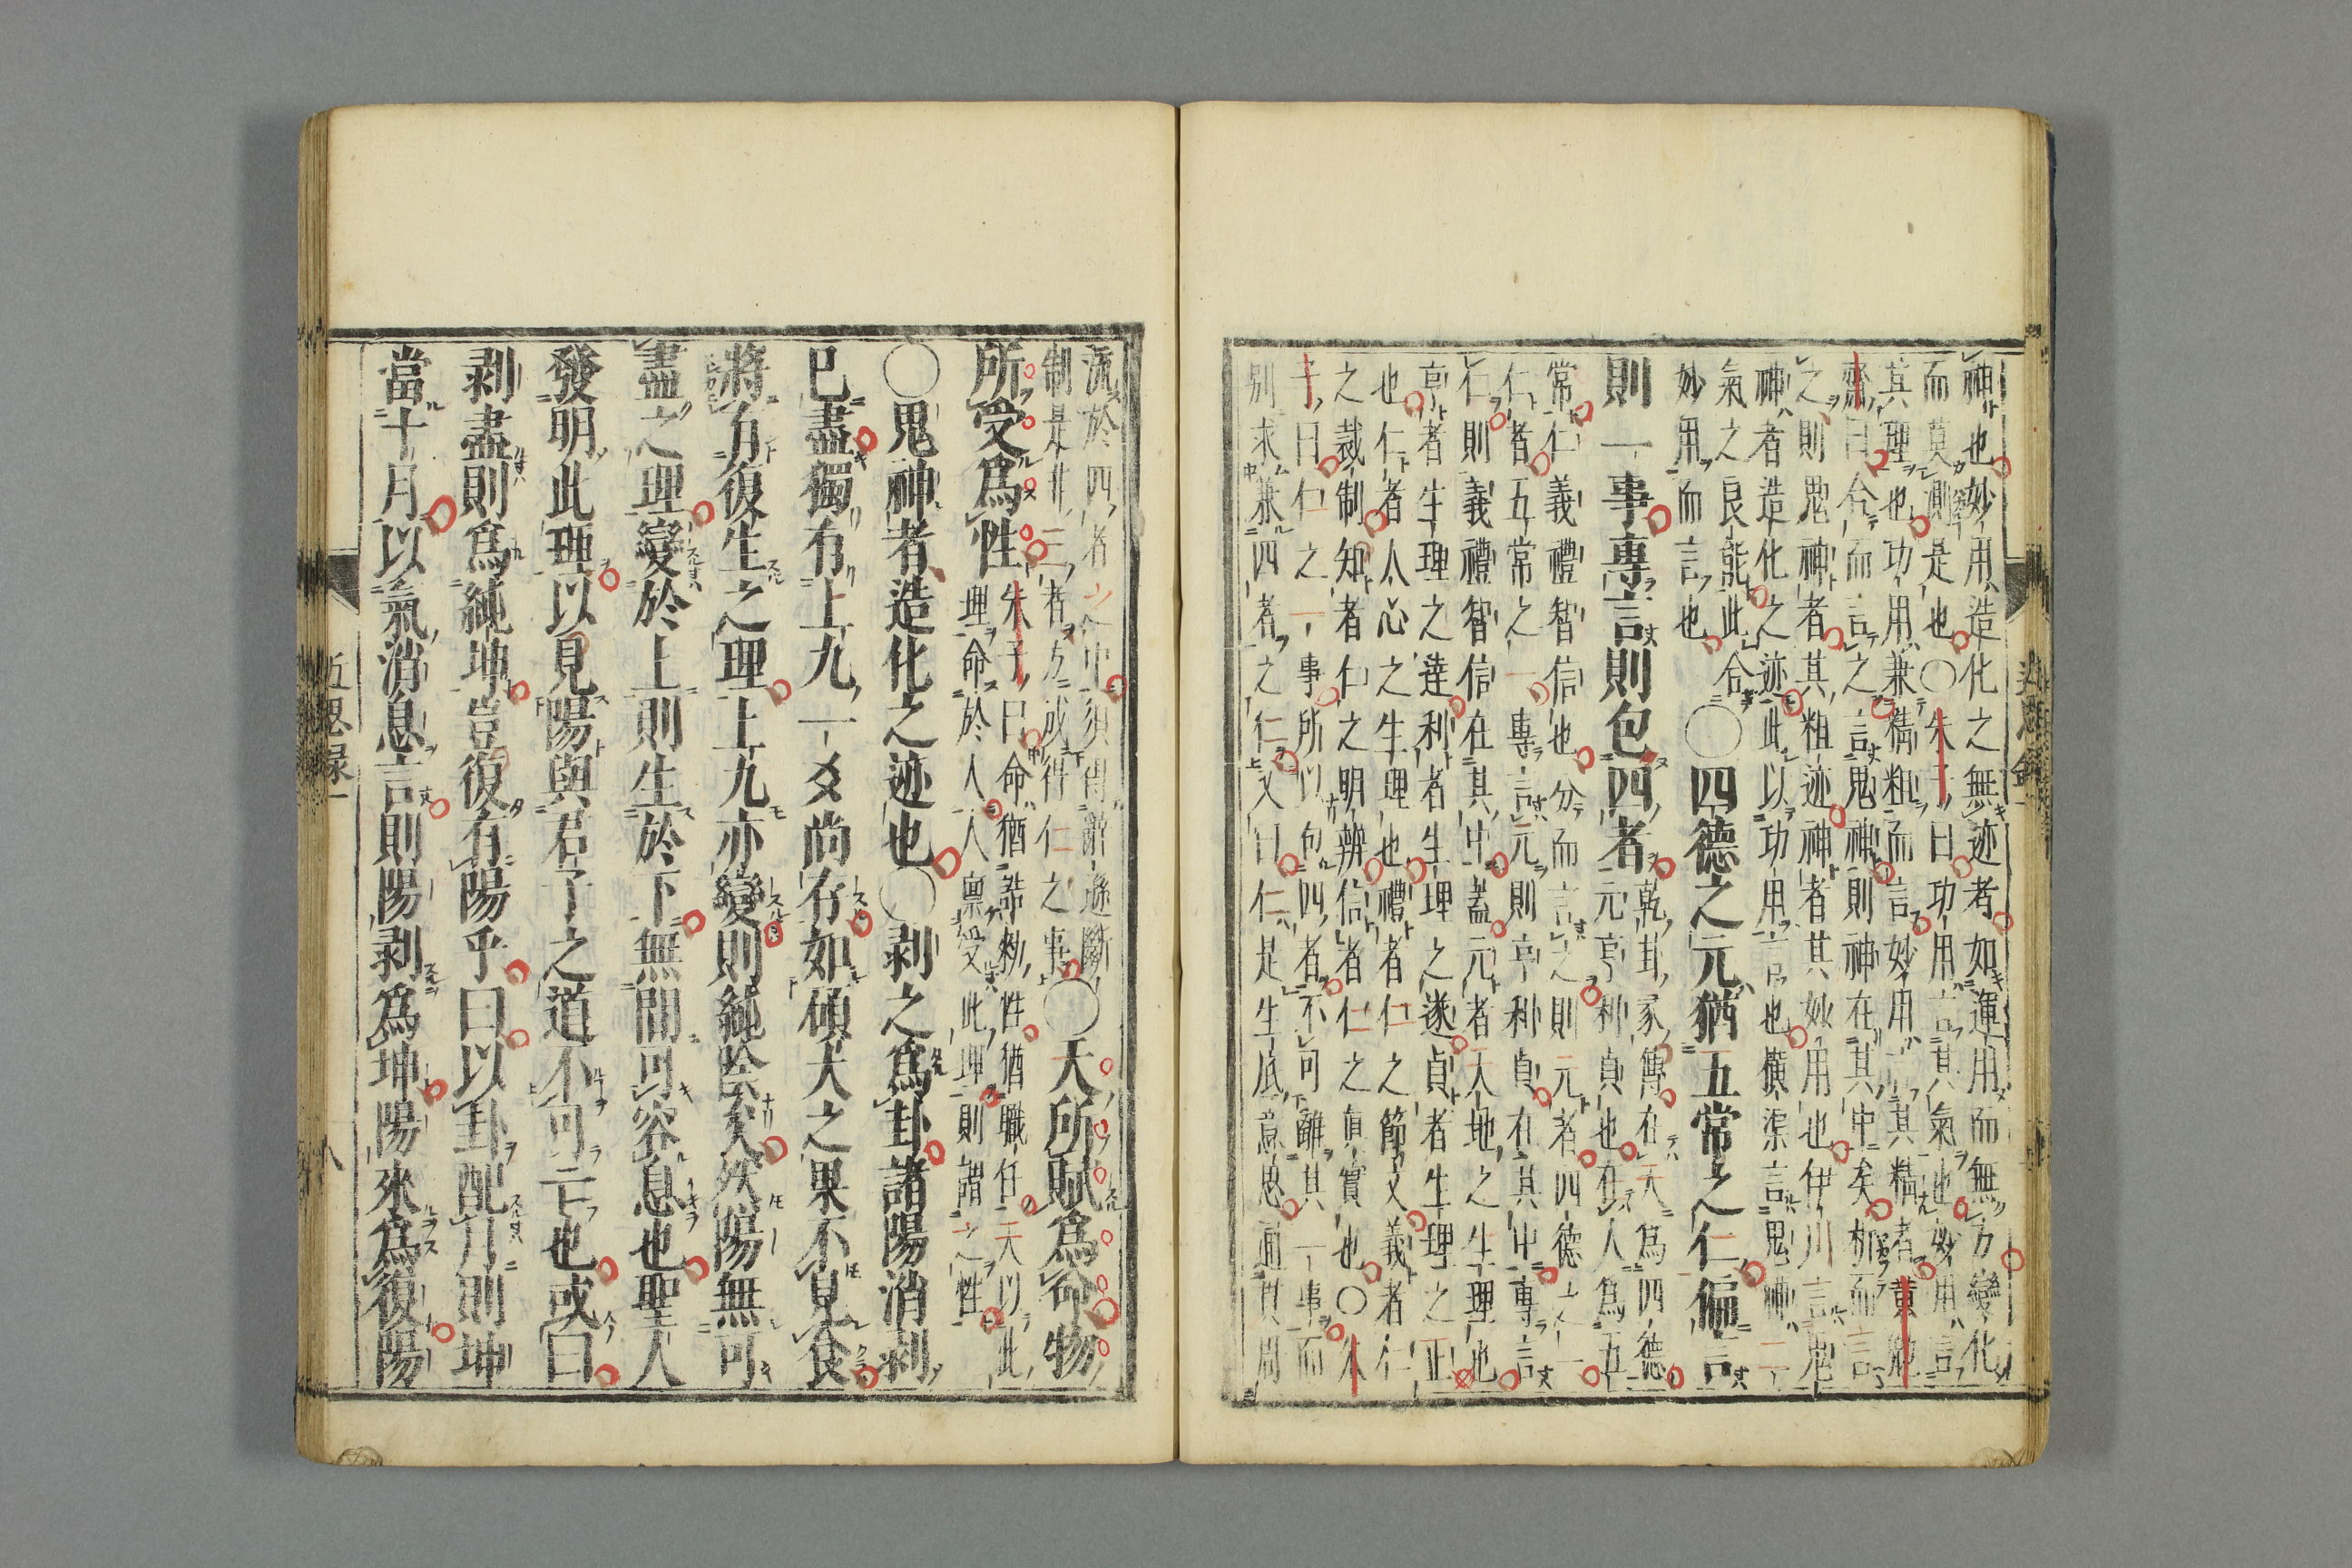 神也妙用造化之無迹者如運用而無方變化
而莫測是也〇朱子曰功用言其氣也妙用言
其理也功用兼精粗而言妙用言其精者黄勉
齋曰合而言之言鬼神則神在其中矣析而言
之則鬼神者其粗迹神者其妙用也伊川言鬼
神者造化之迹此以功用言也横渠言鬼神二
氣之良能此合
妙用而言也
〇四德之元猶五常之仁偏言
則一事專言則包四者
乾卦彖傳在天為四德
元亨利貞也在人為五
常仁義禮智信也分而言之則元者四德之一
仁者五常之一專言元則亨利貞在其中專言
仁則義禮智信在其中蓋元者天地之生理也
亨者生理之達利者生理之遂貞者生理之正
也仁者人心之生理也禮者仁之節文義者仁
之裁制知者仁之明辨信者仁之眞實也〇朱
子曰仁之一事所以包四者不可離其一事而
別求兼四者之仁又曰仁是生底意思通貫周
近思錄一
流於四者之中須得辭遜斷
制是非三者方成得仁之事
〇天所賦爲命物
所受爲性
朱子曰命猶誥勑性猶職任天以此
理命於人人禀受此理則謂之性
〇鬼神者造化之迹也〇剥之爲卦諸陽消剥
已盡獨有上九一爻尚有如碩大之果不見食
將有復生之理上九亦變則純陰矣然陽無可
盡之理變於上則生於下無間可容息也聖人
發明此理以見陽與君子之道不可亡也或曰
剥盡則爲純坤豈復有陽乎曰以卦配月則坤
當十月以氣消息言則陽剥爲坤陽來爲復陽
近思録一
八